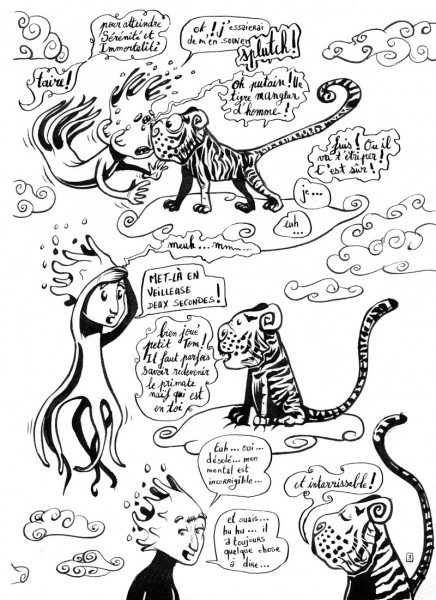 pour atteindre
Sérénité et
Immortalité
taire!
ok! j'essaierai
de m'en souven
splutch!
oh putain! Un
tigre mangeur
d'homme!
fuis! Ou il
va t'étriper!
C'est sûr!
je...
euh...
meuh...mm...
MET-LÀ EN
VEILLEUSE
DEUX SECONDES!
bien joué
petit Tom!
Il faut parfois
savoir redevenir
le primate
naïf qui est
en toi
Euh... oui...
désolé... mon
mental est
incorrigible...
et ouais...
hu hu... il
a toujours
quelque chose
à dire...
et intarrissable!
3